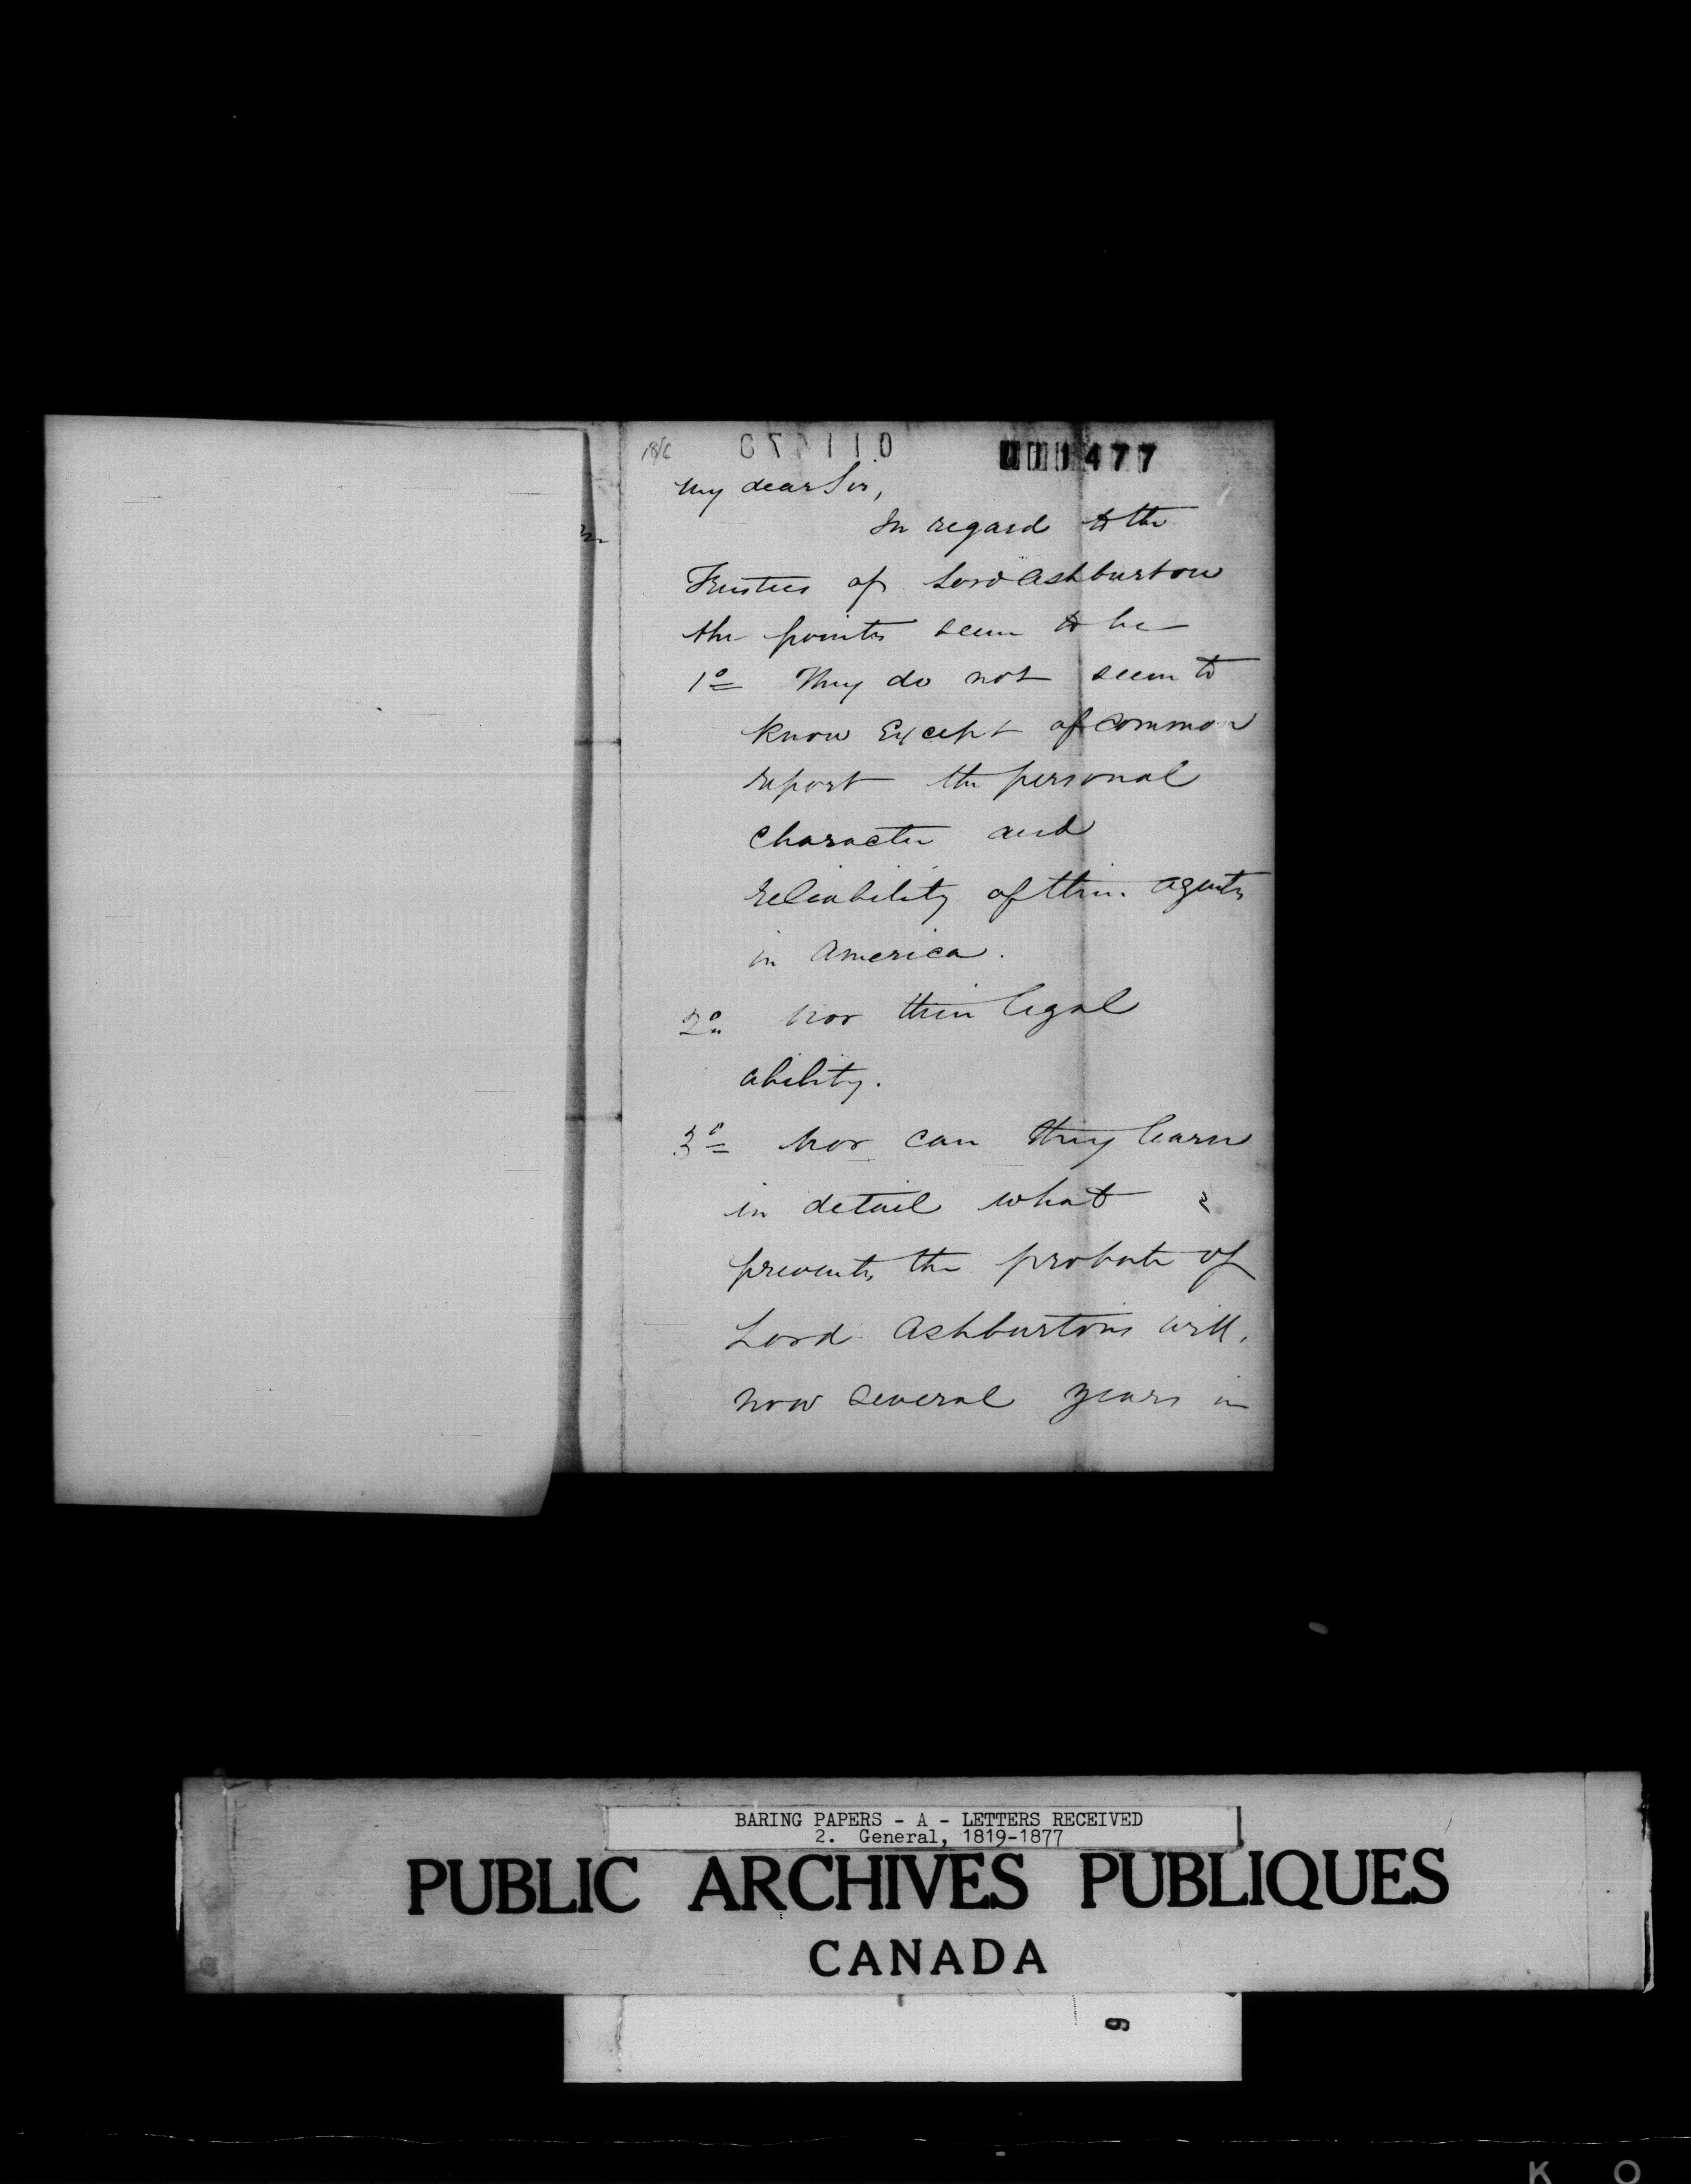 011110
477
My dear Sir,
In regard to the
Trustees of Lord Ashburton
the points seem to be
1º They do not seem to
know Except of common
report the personal
Character and
reliability of their agents
in America.
2º nor their legal
ability.
3º Nor can they learn
in detail what
prevents the probate of
Lord Ashburtons will,
now several years in
BARING PAPERS - A - LETTERS RECEIVED
2. General, 1819-1877
PUBLIC ARCHIVES PUBLIQUES
CANADA
9
K O